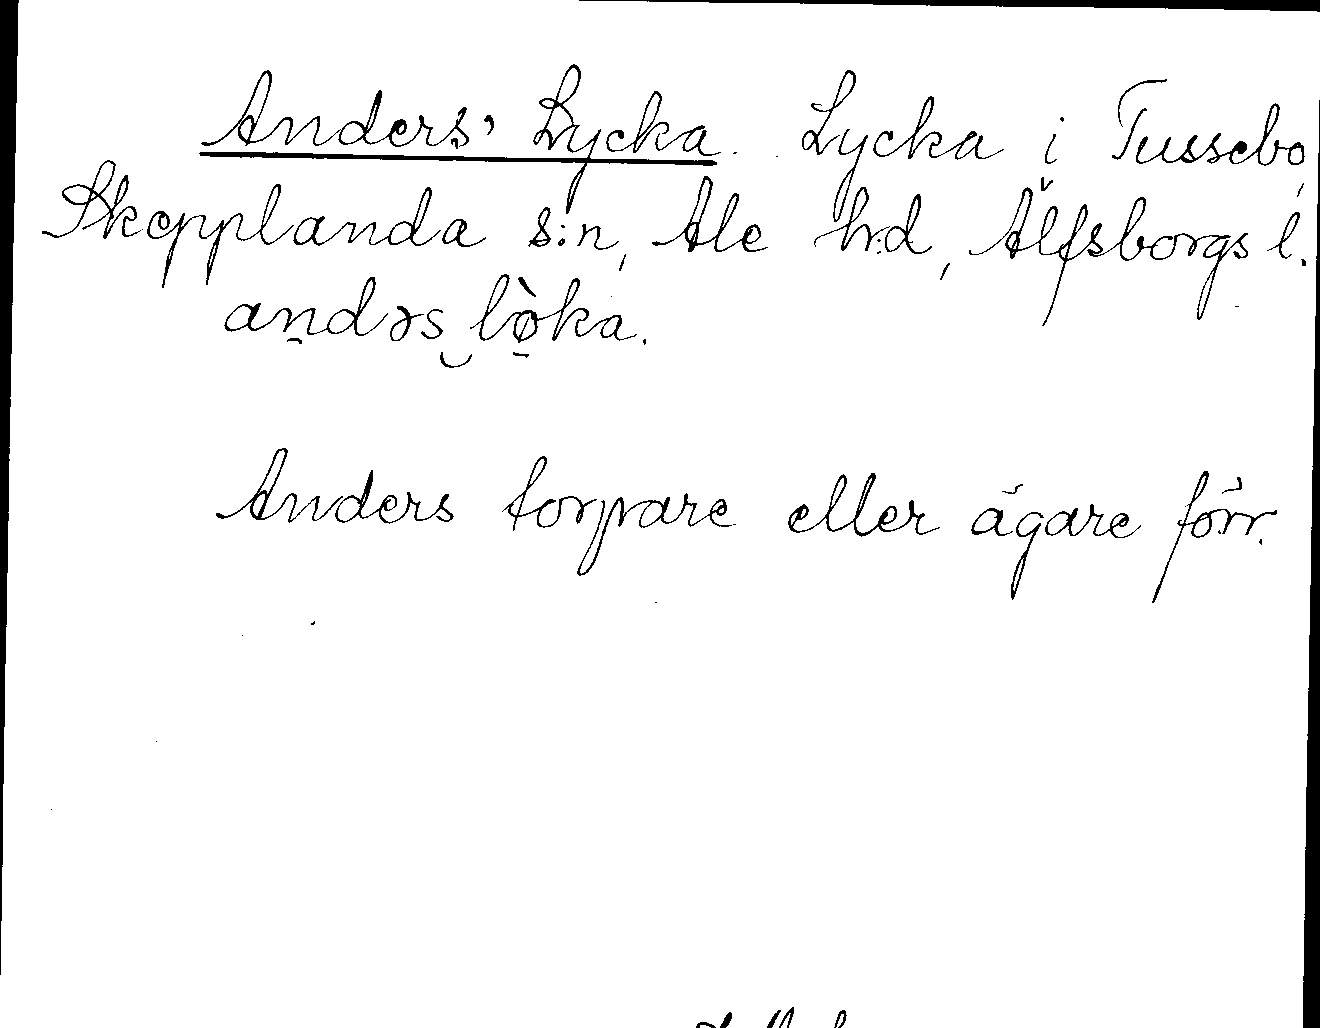 Anders' Lycka. Lycka i Tussebo,
Skepplanda s:n, Ale h:d, Älfsborgs l.
an̠dəs‿lø̠̀ka.
Anders torpare eller ägare förr.